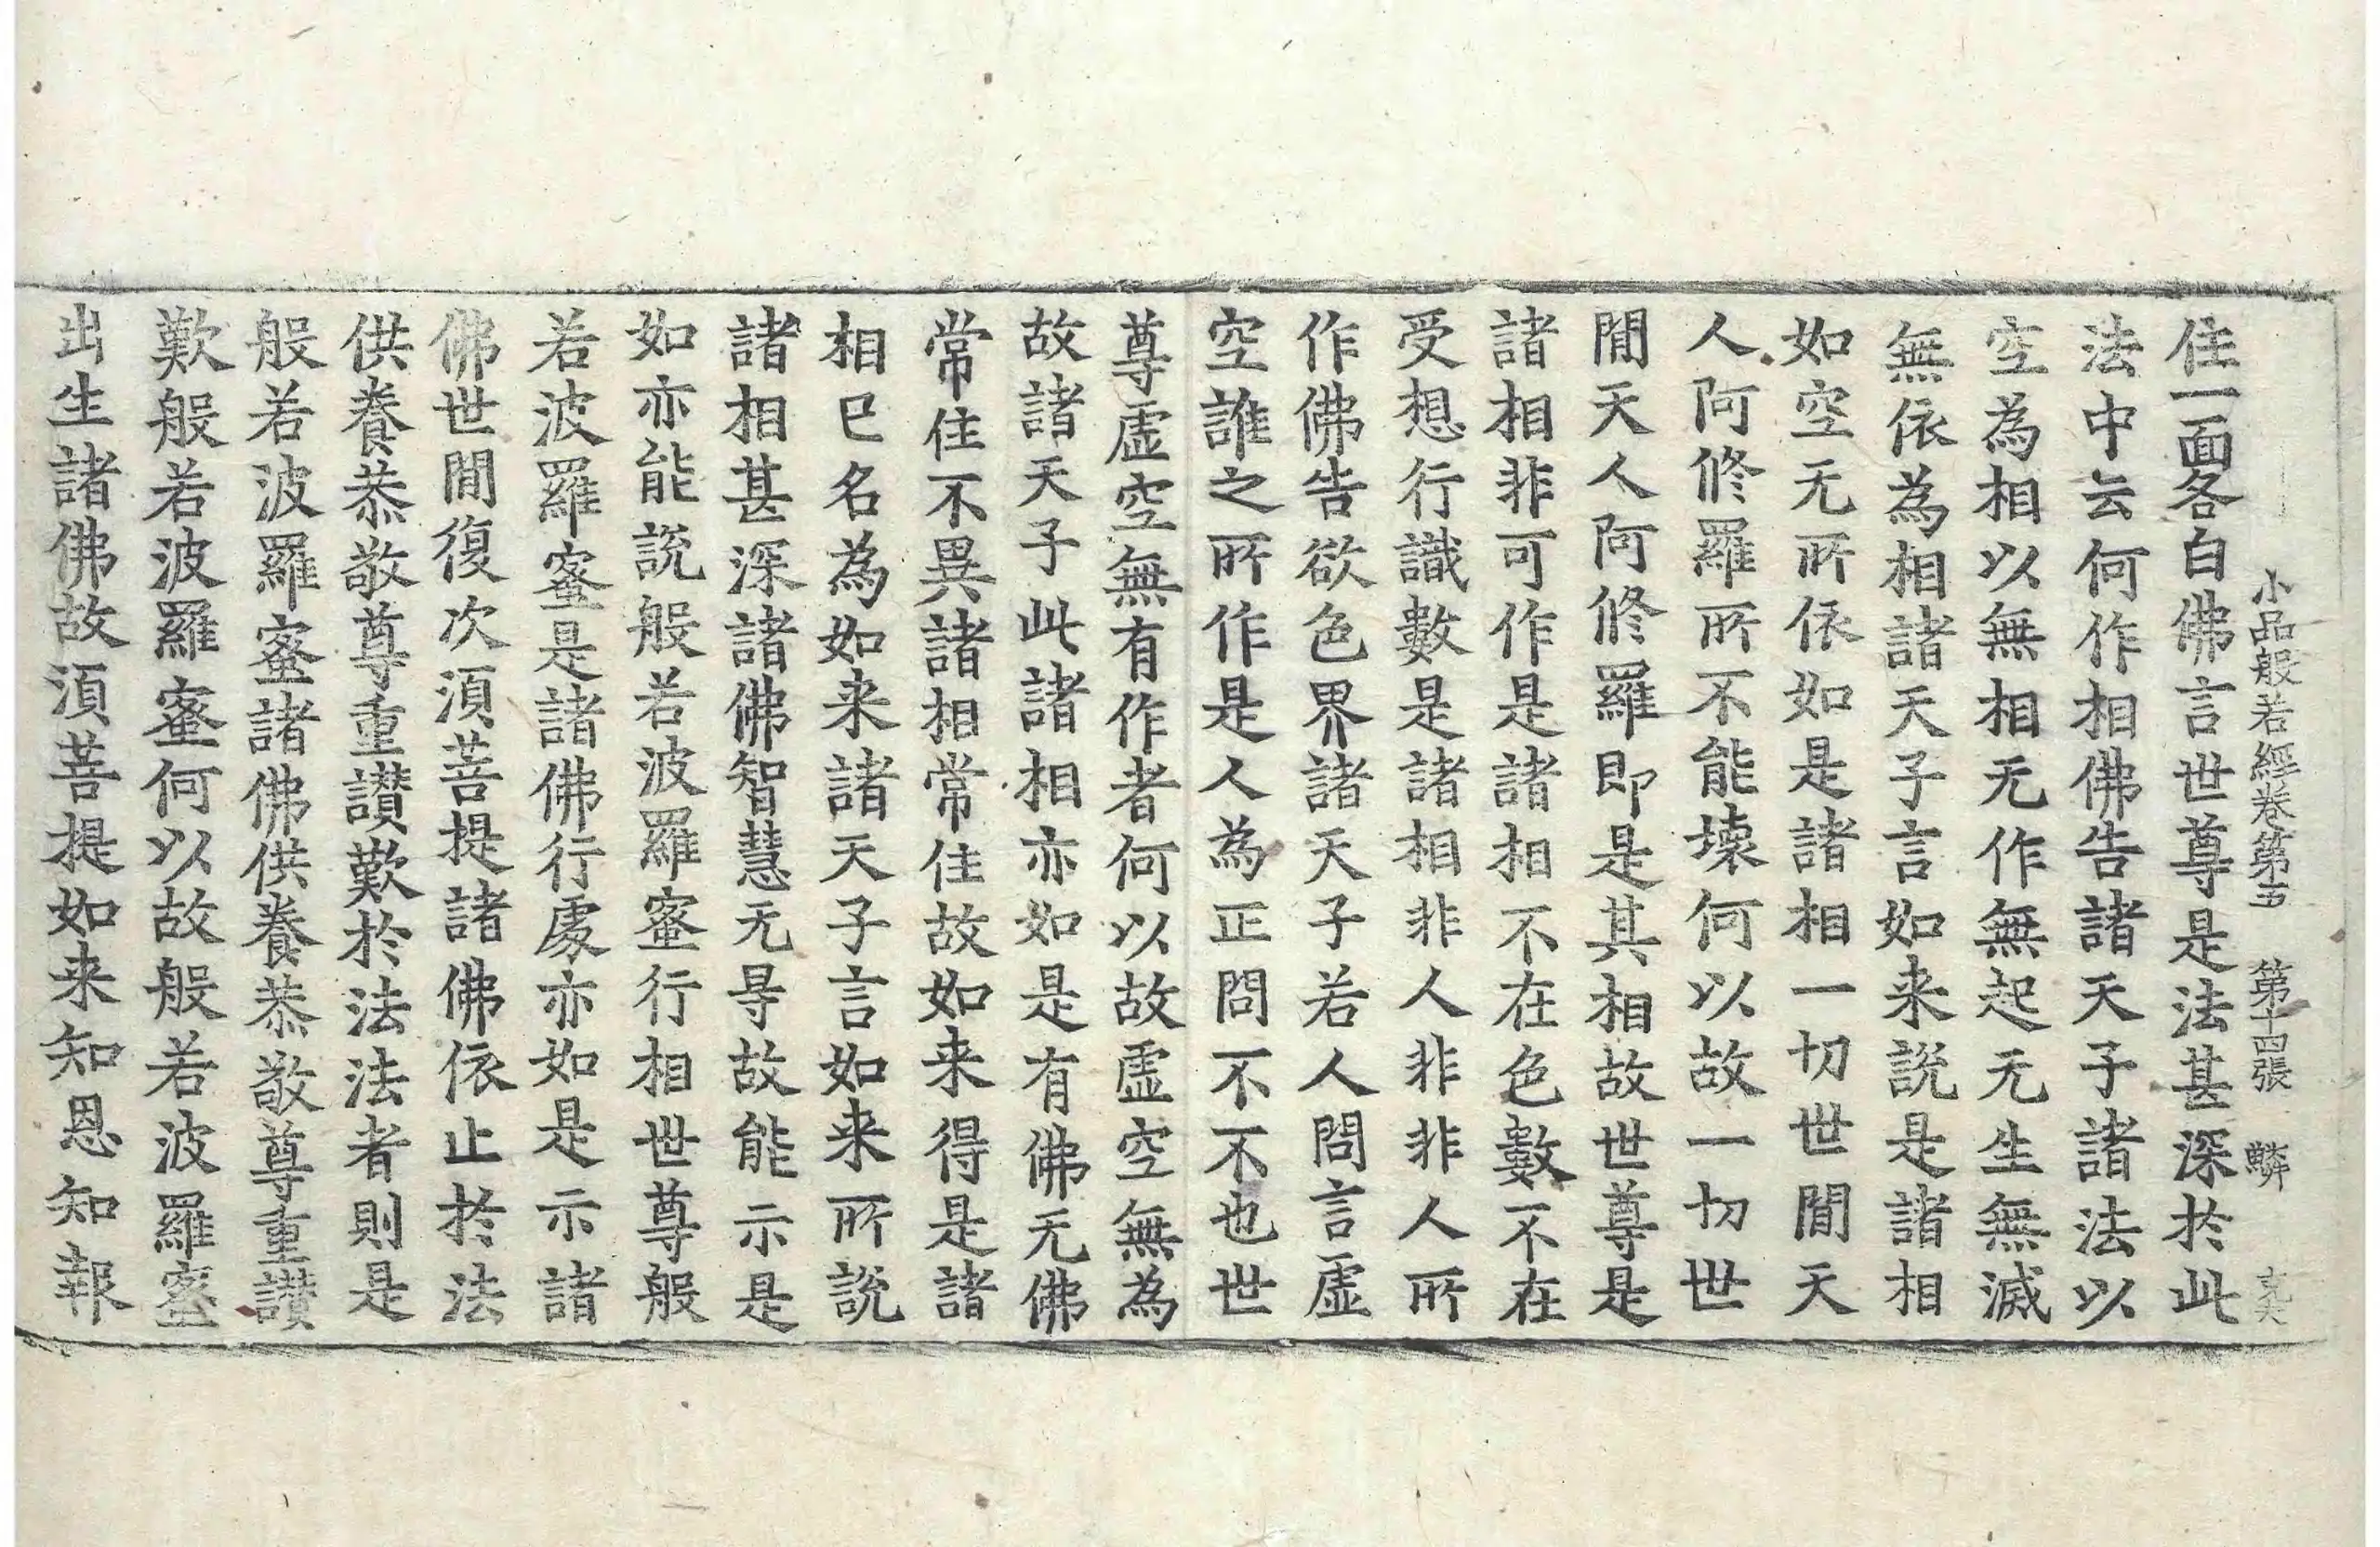 小品般若經卷第五 第十四張 鱗
住一面各白佛言世尊是法甚深於此
法中云何作相佛告諸天子諸法以
空為相以無相无作無起无生無滅
無依為相諸天子言如来說是諸相
如空无所依如是諸相一切世閒天
人阿修羅所不能壞何以故一切世
閒天人阿修羅即是其相故世尊是
諸相非可作是諸相不在色數不在
受想行識數是諸相非人非非人所
作佛告欲色界諸天子若人問言虛
空誰之所作是人為正問不不也世
尊虛空無有作者何以故虛空無為
故諸天子此諸相亦如是有佛无佛
常住不異諸相常住故如来得是諸
相已名為如来諸天子言如来所說
諸相甚深諸佛智慧无㝵故能示是
如亦能說般若波羅蜜行相世尊般
若波羅蜜是諸佛行處亦如是示諸
佛世閒復次湏菩提諸佛依止於法
供養恭敬尊重讃歎於法法者則是
般若波羅蜜諸佛供養恭敬尊重讃
歎般若波羅蜜何以故般若波羅蜜
出生諸佛故湏菩提如来知恩知報